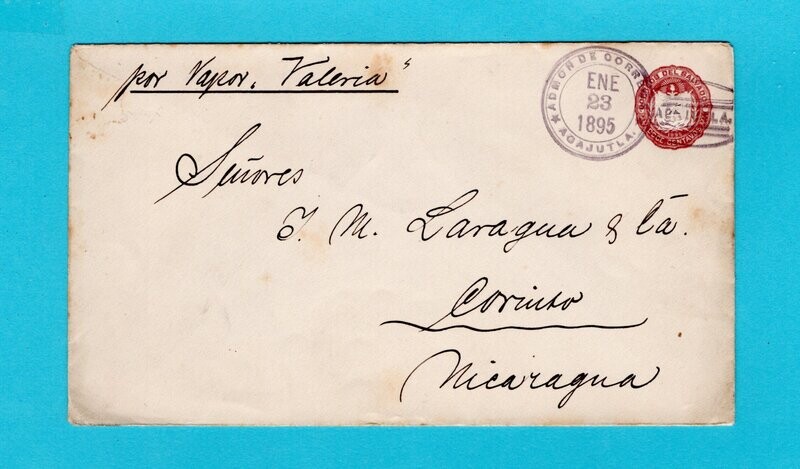 por Vapor „Valeria“
ADMON DE CORRE
ENE
23
1895
★ ACAJUTLA.
CORREOS DEL SALVADOR
CENTAVOS
Señores
J. M. Laragua & Cà.
Corinto
Nicaragua